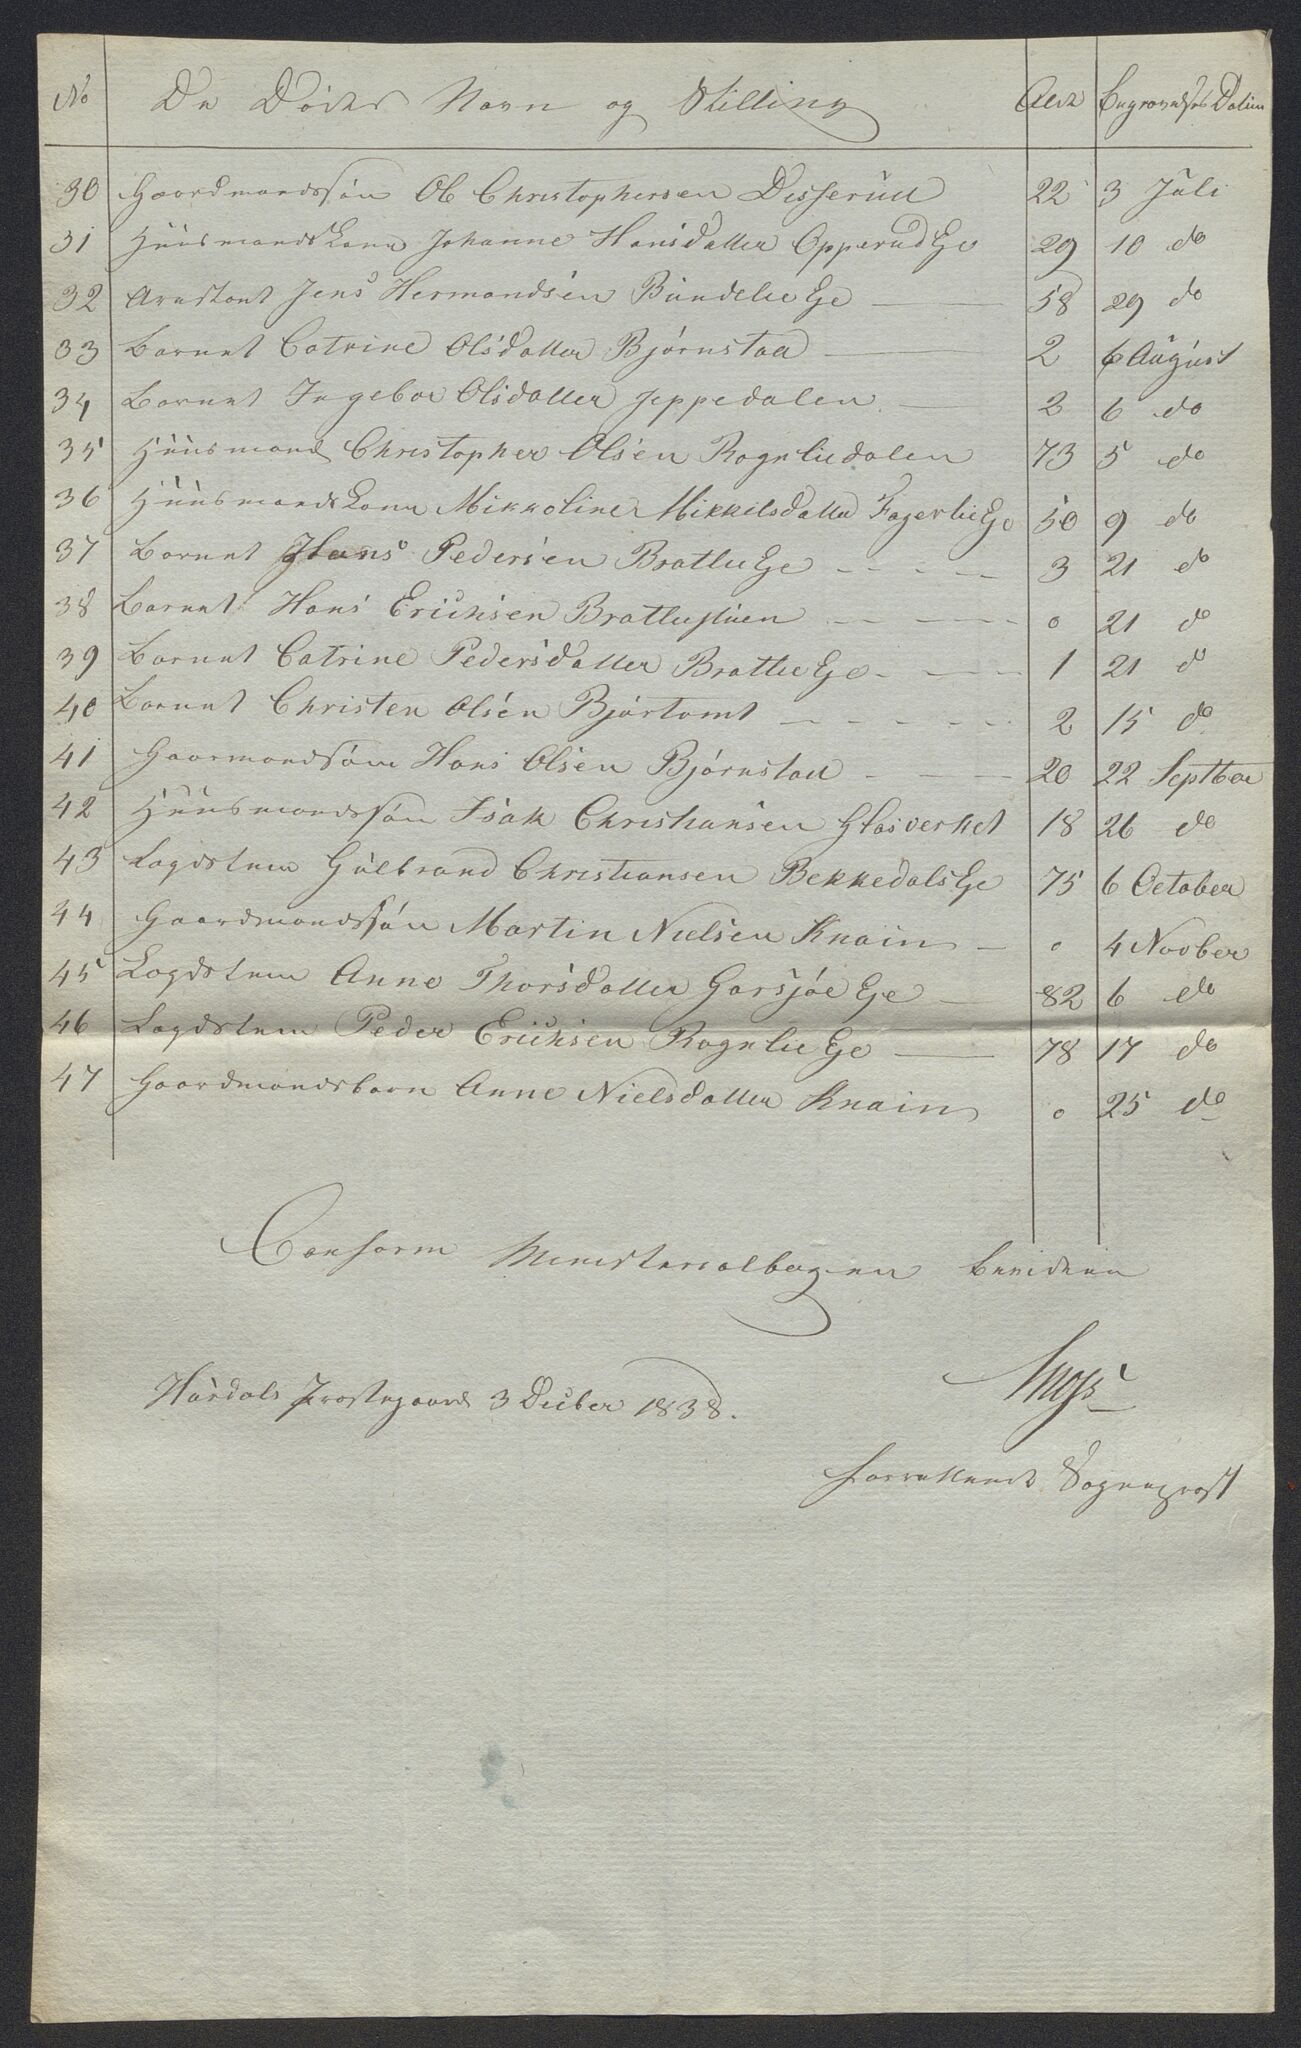 No De Dødes Navn og Stilling Alder Begravelses Datum
30 Gaardmandssøn Ole Christophersen Disserud 22 3 Juli
31 Huusmandskone Johanne Hansdatter Opperud Eje 29 10 do
32 Arrestant Jens Hermandsen Bundelie Eje 58 29 do
33 Barnet Catrine Olsdatter Bjørnstad 2 6 August
34 Barnet Ingebor Olsdatter Jeppedalen 2 6 do
35 Huusmand Christopher Olsen Rognliedalen 73 5 do
36 Huusmandskone Mikkoline Mikkelsdatter Fagerlie Eje 50 9 do
37 Barnet Hans Pedersen Bratlie Eje 3 21 do
38 Barnet Hans Erichsen Bratliestuen 0 21 do
39 Barnet Catrine Pedersdatter Bratlie Eje 1 21 do
40 Barnet Christen Olsen Bjørtomt 2 15 do
41 Gaarmandsøn Hans Olsen Bjørnstad 20 22 Septber
42 Huusmandssøn Isak Christiansen Glasverket 18 26 do
43 Lægdslem Gulbrand Christiansen Bekkedals Eje 75 6 October
44 Gaardmandssøn Martin Nielsen Knain 0 4 Novber
45 Lægdslem Anne Thorsdatter Garsjøe Eje 82 6 do
46 Lægdslem Peder Erichsen Rognlie Eje 78 17 do
47 Gaardmandsbarn Anne Nielsdatter Knain 0 25 do
Conform Ministerialbogen bevidner
Hurdals Præstegaard 3 Decber 1838.
Sognepræst